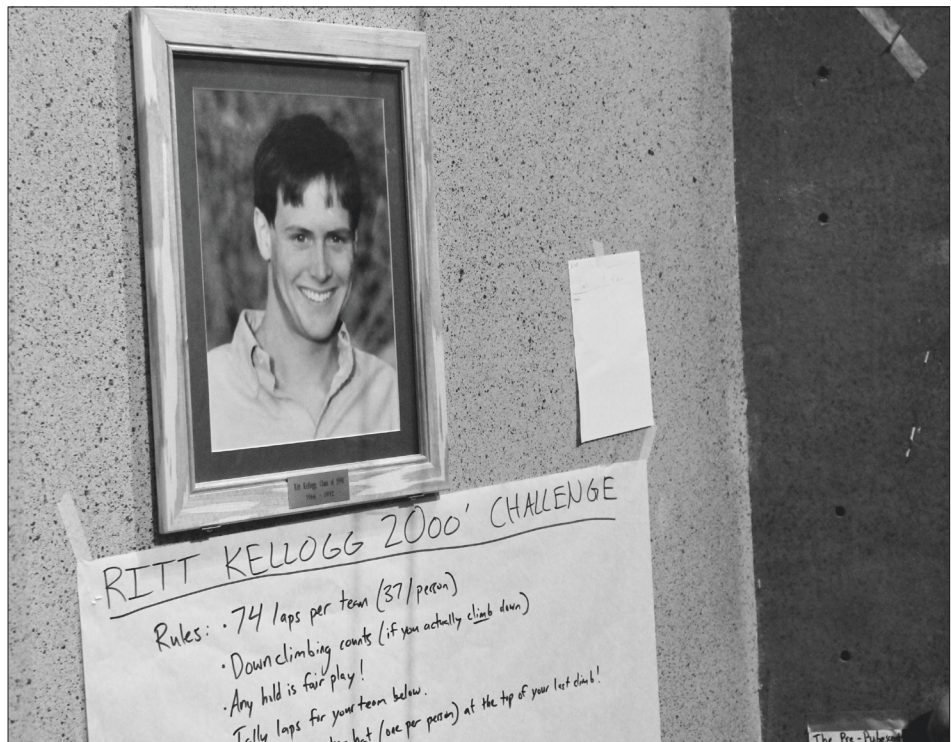 Ritt Kellogg, Class of 1990
- 1992
RITT KELLOGG 2000' CHALLENGE
Rules: · 74 laps per team (37/person)
· Downclimbing counts (if you actually climb down)
· Any hold is fair play!
Tally laps for your team below.
hat (one per person) at the top of your last climb!
The Pre-Pubescent